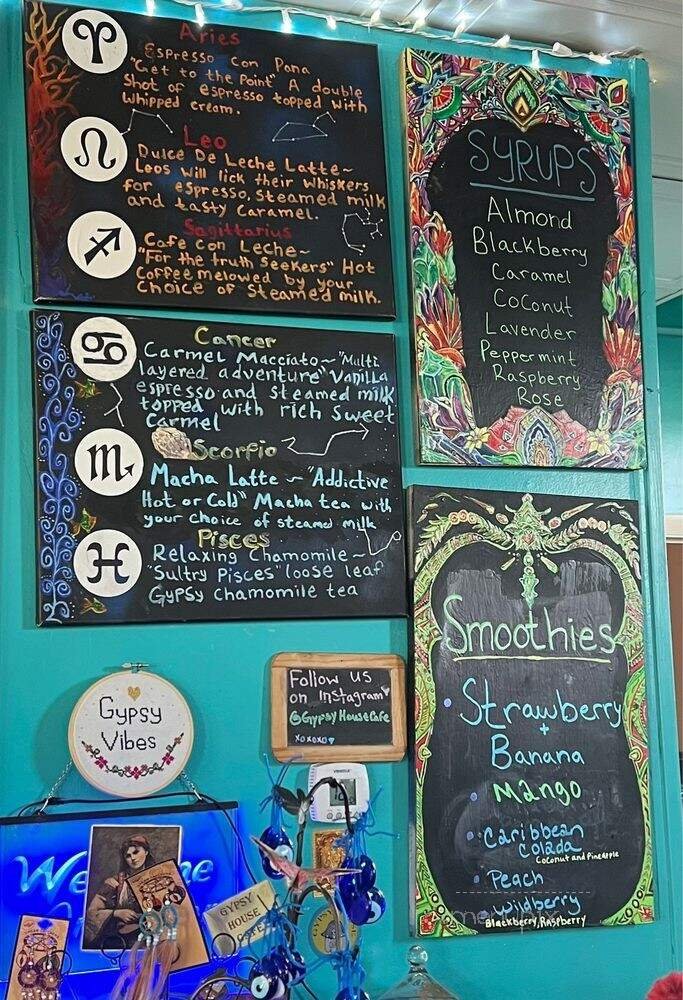 Aries
Espresso con Pana
"Get to the Point" A double
Shot of espresso topped with
Whipped cream.
Leo
Dulce De Leche Latte~
Leos will lick their whiskers
for espresso, steamed milk
and tasty caramel.
Sagittarius
Cafe con Leche~
"For the truth Seekers" Hot
Coffee melowed by your
choice of Steamed milk.
Cancer
Carmel Macciato~ "Multi
layered adventure" Vanilla
espresso and steamed milk
topped with rich sweet
Carmel
Scorpio
Macha Latte ~ "Addictive
Hot or Cold" Macha tea with
your choice of steamed milk
Pisces
Relaxing Chamomile~
"Sultry Pisces" loose leaf
Gypsy chamomile tea
SYRUPS
Almond
Blackberry
Caramel
Coconut
Lavender
Peppermint
Raspberry
Rose
Smoothies
• Strawberry
+
Banana
• Mango
• Caribbean
Colada
Coconut and Pineapple
• Peach
• Wildberry
Blackberry, Raspberry
Gypsy
Vibes
Follow us
on Instagram
@GypsyHouseCafe
xoxoxo
We me
GYPSY
HOUSE
CAFE
GYPSY